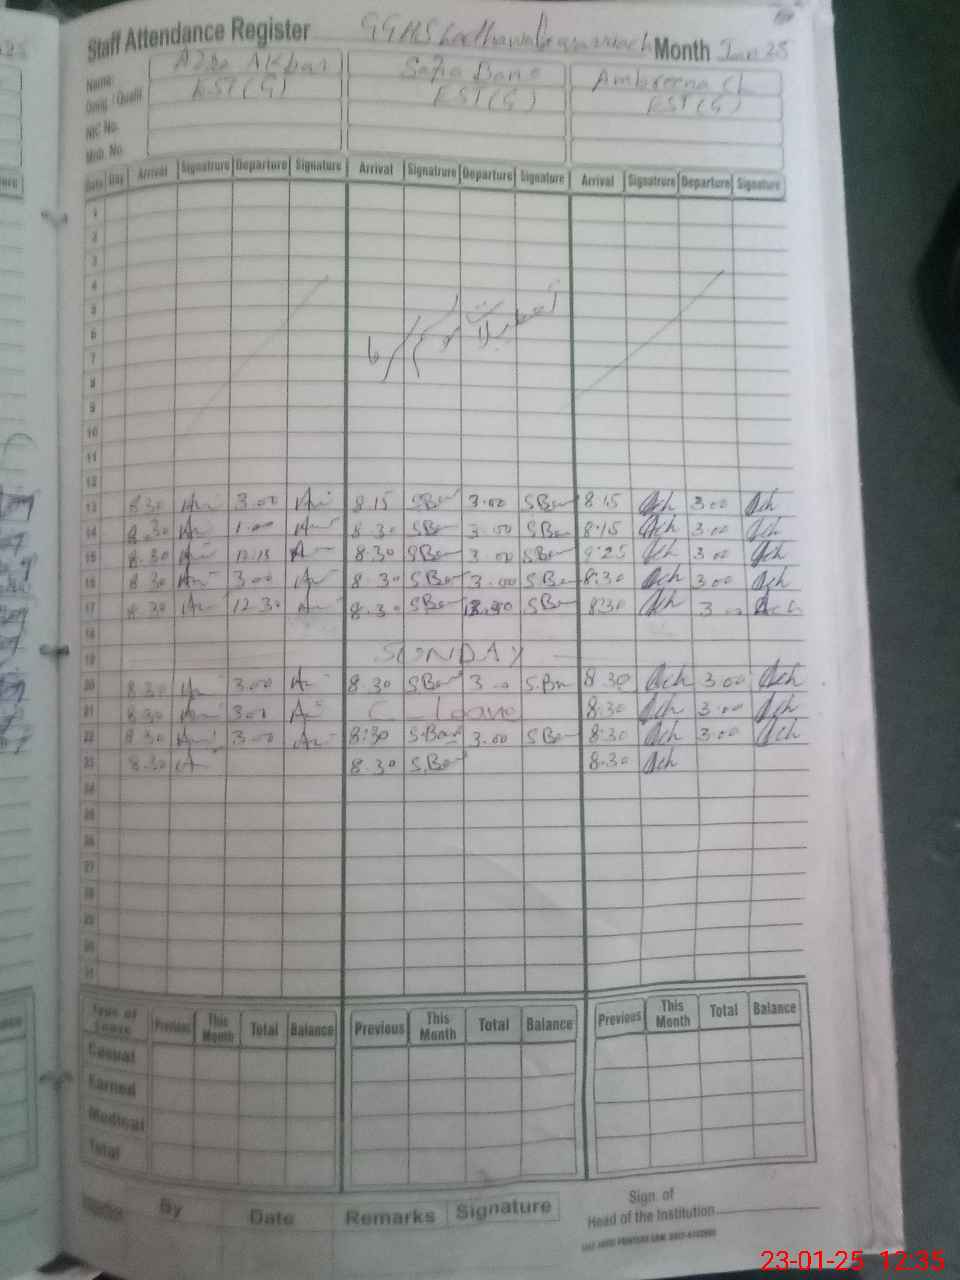 Staff Attendance Register GGHS Month Jan 25
Name: Azra Akbar Safia Bano Ambreena Ch
Desig. / Quali. EST (G) EST (G) EST (G)
NIC No.
Mob. No.
Date Day Arrival Signatrure Departure Signature Arrival Signatrure Departure Signature Arrival Signatrure Departure Signature
1
2
3
4
5
6
7
8
9
10
11
12
13 8.30 3.00 8.15 SBan 3.00 SBan 8.15 Ach 3.00 Ach
14 8.30 1.00 8.30 SBan 3.00 SBan 8.15 Ach 3.00 Ach
15 8.30 12.15 8.30 SBan 3.00 SBan Ach 3.00 Ach
16 8.30 3.00 8.30 SBan 3.00 SBan 8:30 Ach 3.00 Ach
17 8.30 12.30 8.30 SBan SBan 8:30 Ach 3 Ach
18
19 SUNDAY
20 8.30 3.00 8.30 SBan 3 S.Ban 8.30 Ach 3.00 Ach
21 8.30 3.00 C_Leave 8:30 Ach 3.00 Ach
22 8.30 3.00 8:30 S.Ban 3.00 SBan 8:30 Ach 3.00 Ach
23 8.30 8.30 S.Ban 8.30 Ach
24
25
26
27
28
29
30
31
Type of Leave Previous This Month Total Balance Previous This Month Total Balance Previous This Month Total Balance
Casual
Earned
Medical
Total
By Date Remarks Signature
Sign. of
Head of the Institution
23-01-25 12:35